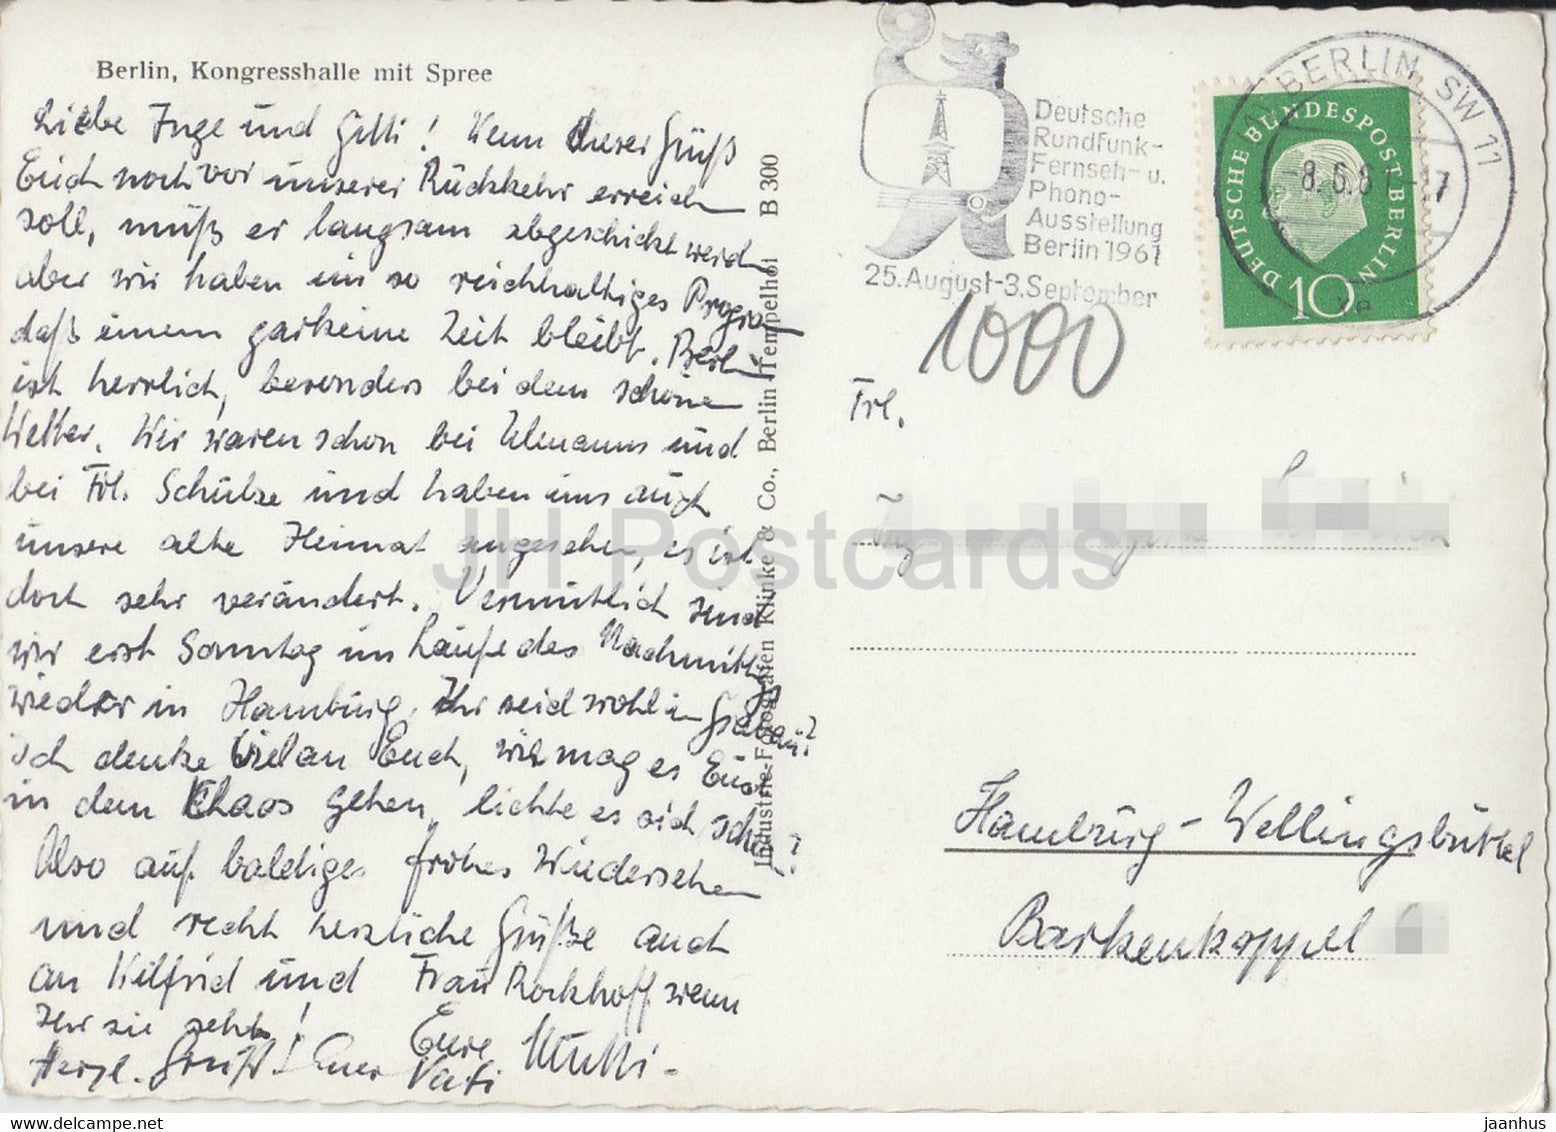 Berlin, Kongresshalle mit Spree
Liebe Inge und Gitti! Wenn dieser Gruß
Euch noch vor unserer Rückkehr erreichen
soll, muß er langsam abgeschickt werden
aber wir haben ein so reichhaltiges Program
daß einem garkeine Zeit bleibt. Berlin
ist herrlich, besonders bei dem schönen
Wetter. Wir waren schon bei Ulmanns und
bei Frl. Schulze und haben uns auch
unsere alte Heimat angesehen, es ist
doch sehr verändert. Vermutlich sind
wir erst Sonntag im Laufe des Nachmittags
wieder in Hamburg. Ihr seid wohl in
ich denke viel an Euch, wie mag es Euch
in dem Chaos gehen, lichte es sich schon?
Also auf baldiges frohes Wiedersehen
und recht herzliche Grüße auch
an Wilfrid und Frau Rockhoff wenn
Ihr sie seht!
Eure Mutti.
Herzl. Gruß! Euer Vati
Industrie-Fotografen Klinke & Co., Berlin Tempelhof B 300
Deutsche
Rundfunk-
Fernseh- u.
Phono-
Ausstellung
Berlin 1961
25. August-3. September
BERLIN SW 11
-8.6.61-7
DEUTSCHE BUNDESPOST BERLIN
10
1000
Frl.
Hamburg-Wellingsbüttel
Barkenkoppel
JH Postcards
Berlin, Kongresshalle mit Spree - used
jaanhus